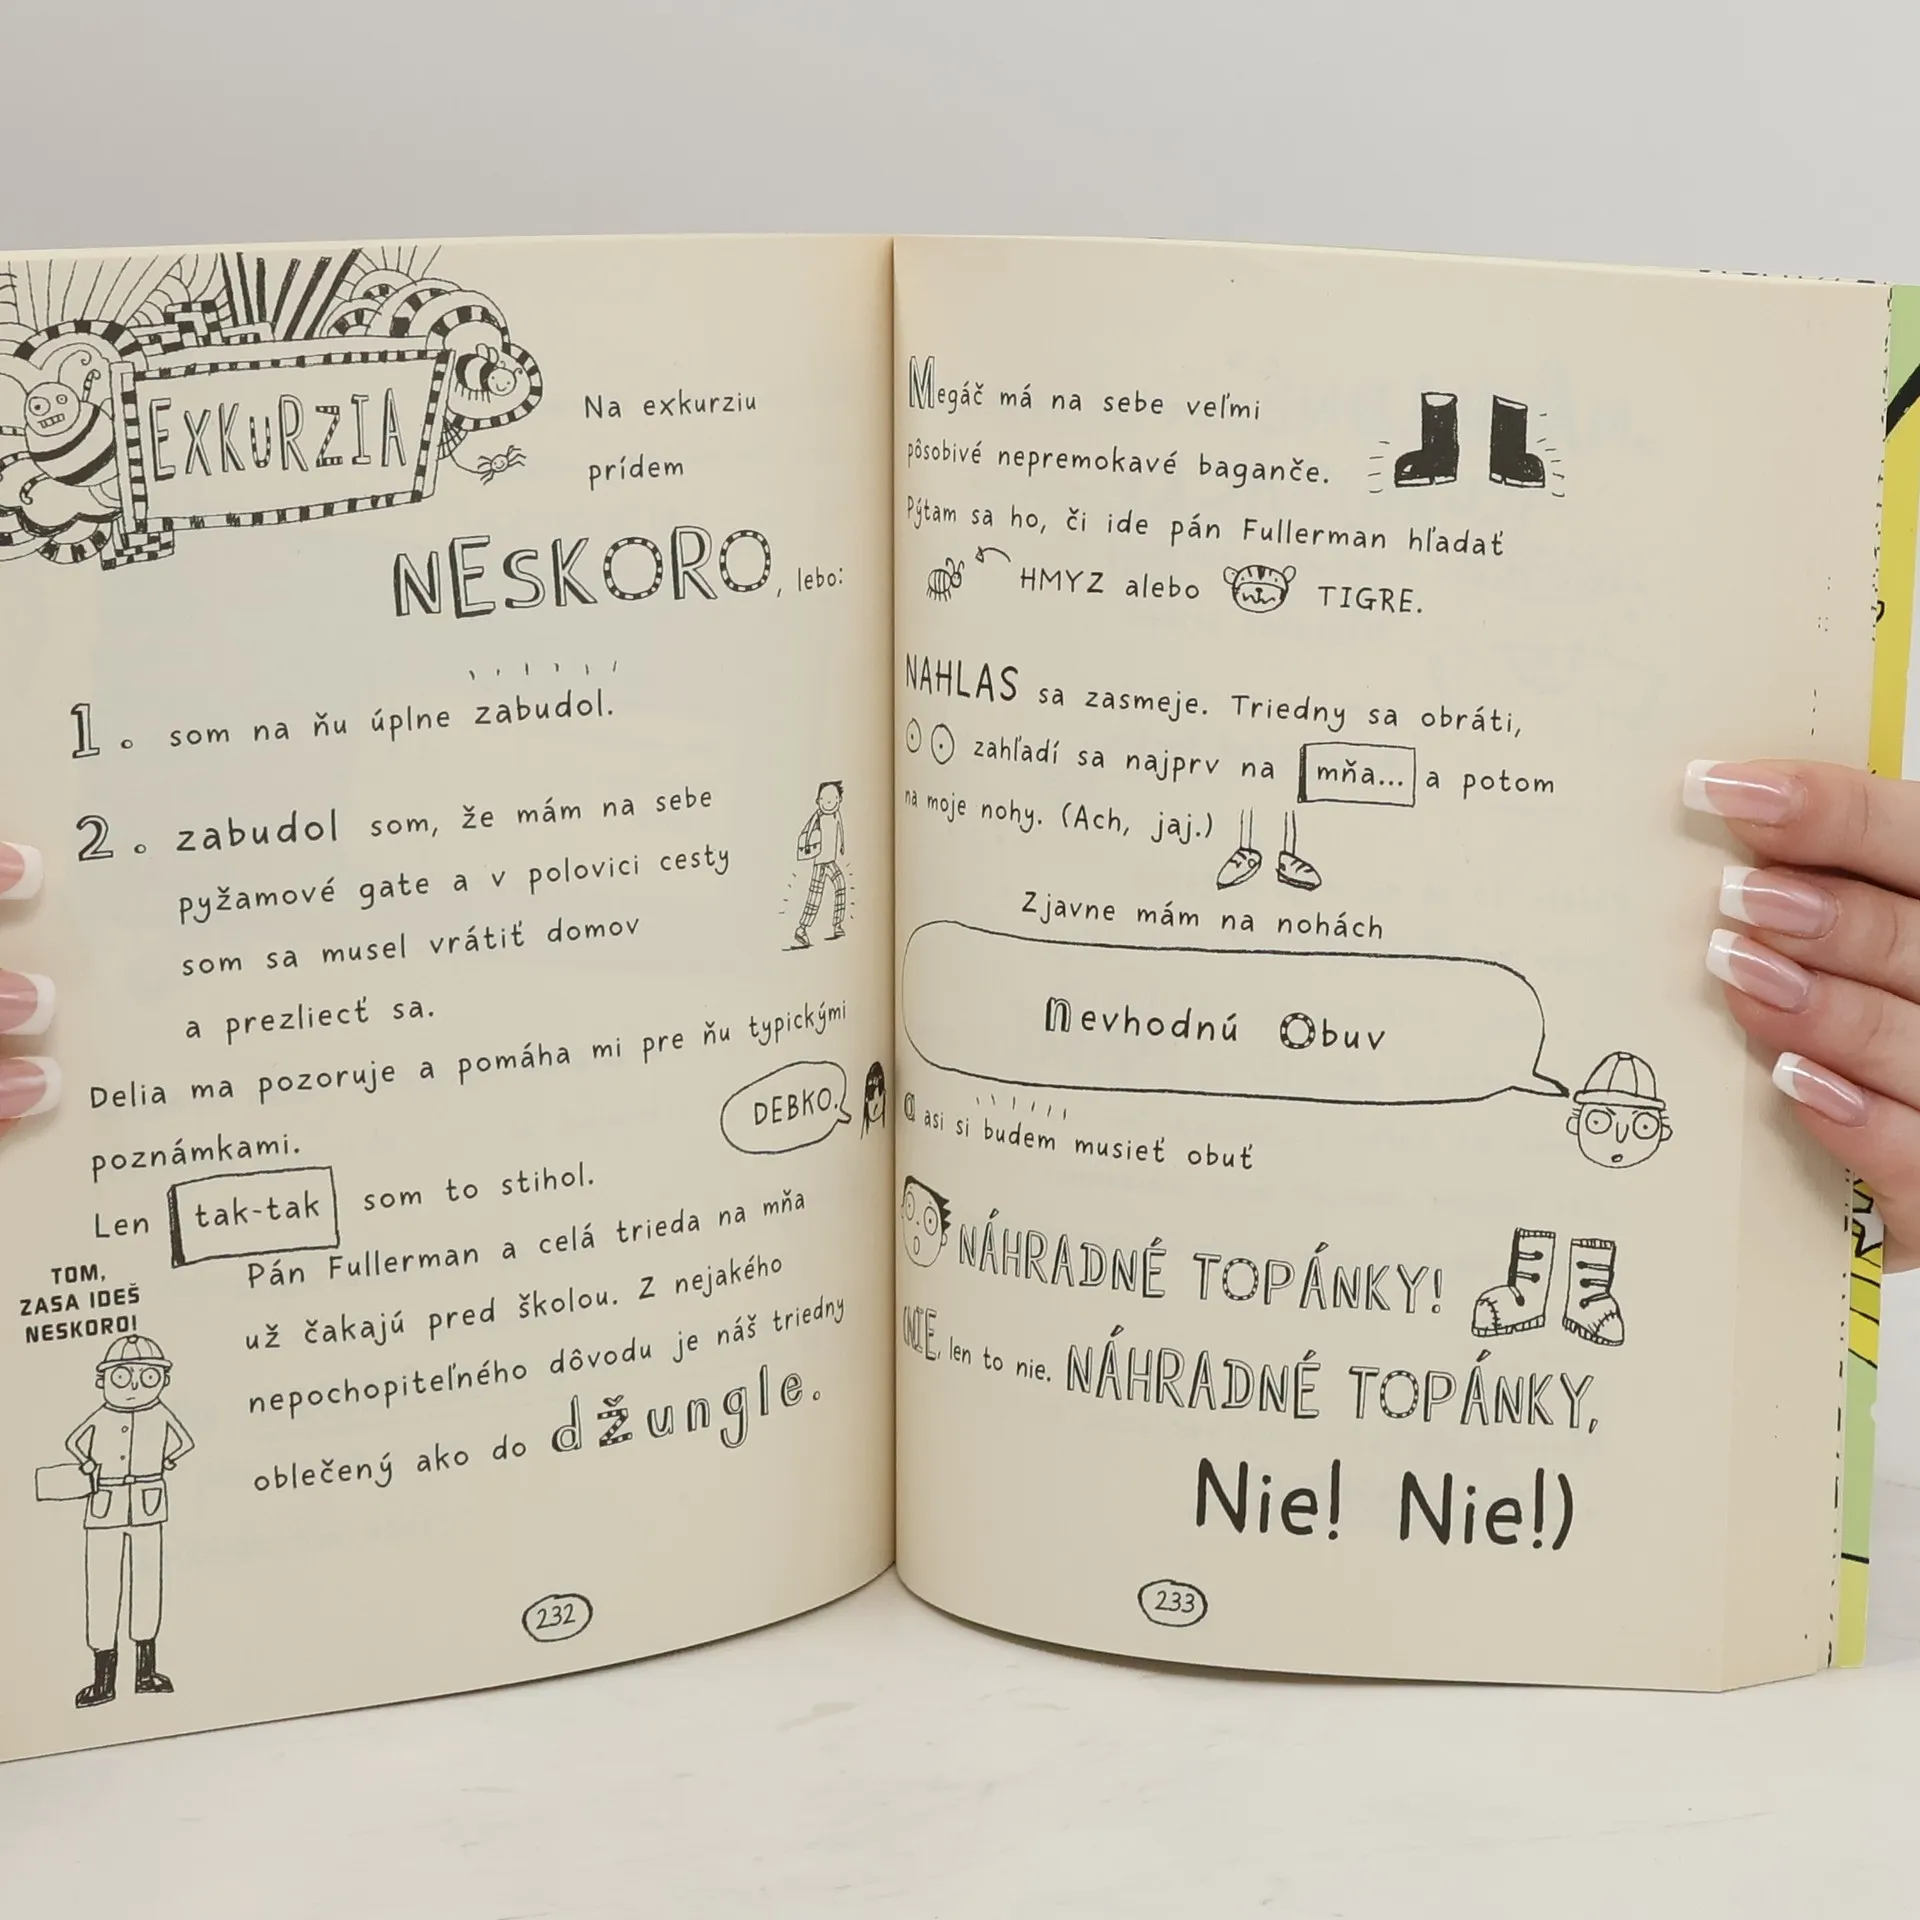 EXKURZIA
Na exkurziu
prídem
NESKORO, lebo:
1. som na ňu úplne zabudol.
2. zabudol som, že mám na sebe
pyžamové gate a v polovici cesty
som sa musel vrátiť domov
a prezliecť sa.
Delia ma pozoruje a pomáha mi pre ňu typickými
poznámkami.
DEBKO.
Len tak-tak som to stihol.
Pán Fullerman a celá trieda na mňa
už čakajú pred školou. Z nejakého
nepochopiteľného dôvodu je náš triedny
oblečený ako do džungle.
TOM,
ZASA IDEŠ
NESKORO!
232
Megáč má na sebe veľmi
pôsobivé nepremokavé baganče.
Pýtam sa ho, či ide pán Fullerman hľadať
HMYZ alebo TIGRE.
NAHLAS sa zasmeje. Triedny sa obráti,
zahľadí sa najprv na mňa... a potom
na moje nohy. (Ach, jaj.)
Zjavne mám na nohách
nevhodnú Obuv
a asi si budem musieť obuť
NÁHRADNÉ TOPÁNKY!
(NIE, len to nie. NÁHRADNÉ TOPÁNKY,
Nie! Nie!)
233